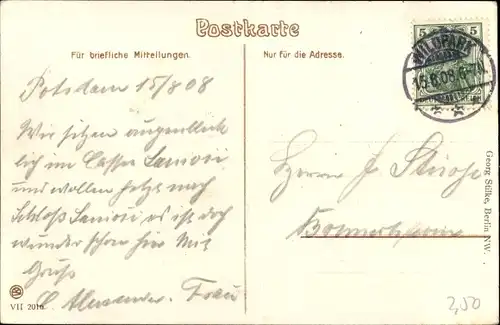 Postkarte
Für briefliche Mitteilungen.
Nur für die Adresse.
5 5
WILDPARK
15.8.08.6-7
Potsdam 15/8 08
Wir sitzen augenblick
lich im
und wollen jetzt nach
Schloß es ist doch
wunderschön hier Mit
Gruß
Alexander Frau
Herrn J.
Georg Stilke, Berlin NW.
VII 2016
2,50